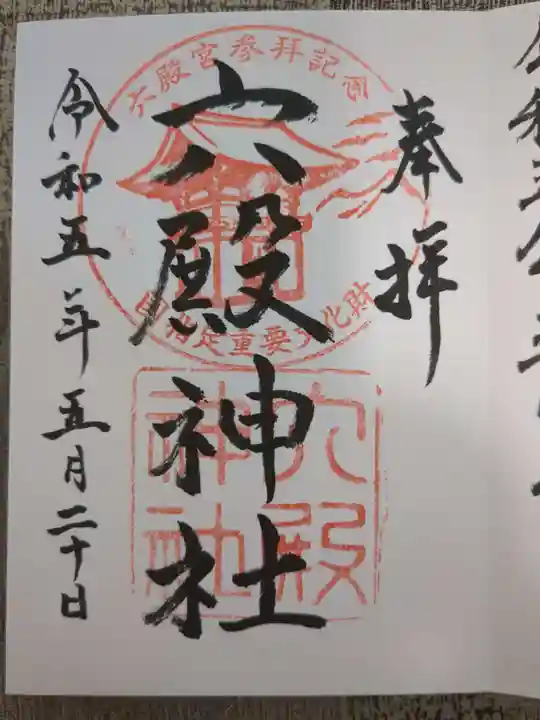 奉拝
六殿宮参拝記念
国指定重要文化財
六殿神社
六殿神社
令和五年五月二十日